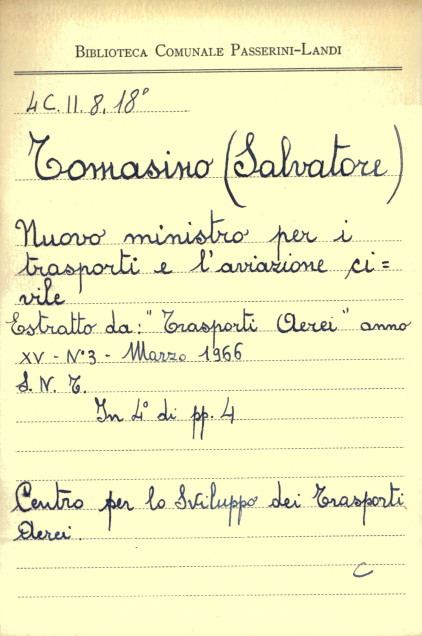 BIBLIOTECA COMUNALE PASSERINI-LANDI
4C. II. 8. 18°
Tomasino (Salvatore)
Nuovo ministro per i
trasporti e l'aviazione ci=
vile
Estratto da: "Trasporti Aerei" anno
XV - N°3 - Marzo 1966
S. N. T.
In 4° di pp. 4
Centro per lo Sviluppo dei Trasporti
Aerei.
C